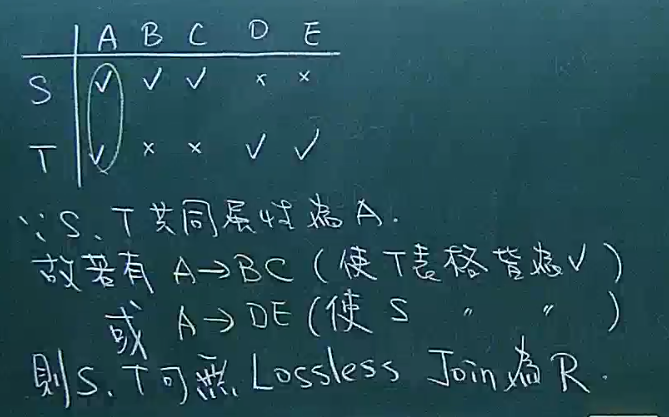 A B C D E
S ✓ ✓ ✓ × ×
T ✓ × × ✓ ✓
∵S、T共同屬性為A.
故若有 A→BC (使T表格皆為✓)
或 A→DE (使S 〃 〃 )
則S、T可無 Lossless Join為R.